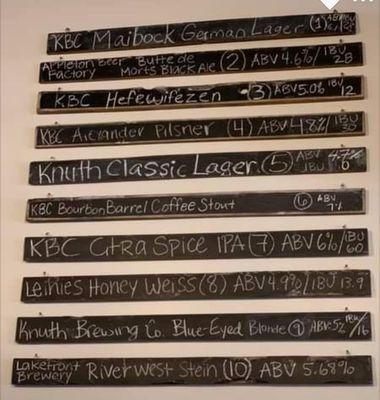 KBC Maibock German Lager (1) ABV IBU
Appleton Beer Factory Butte de Morts Black Ale (2) ABV 4.6%/IBU 28
KBC Hefeweifezen (3) ABV 5.0% IBU/12
KBC Alexander Pilsner (4) ABV 4.8%/IBU 30
Knuth Classic Lager (5) ABV 4.7% IBU 0
KBC Bourbon Barrel Coffee Stout (6) ABV 7%
KBC Citra Spice IPA (7) ABV 6%/IBU 60
Leinies Honey Weiss (8) ABV 4.9%/IBU 13.9
Knuth Brewing Co. Blue-Eyed Blonde (9) ABV: 5%/IBU 16
Lakefront Brewery Riverwest Stein (10) ABV 5.68%